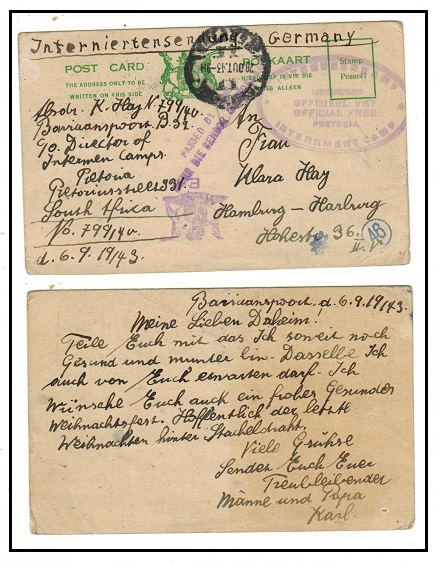 Interniertensendung Germany
POST CARD
THE ADDRESS ONLY TO BE
WRITTEN ON THIS SIDE
KAART
ALLEEN
Stamp
Posseël
OFFISIEEL VRY
OFFICIAL FREE
PRETORIA
INTERNMENT CAMP
PASSED BY
DIE SENSOR
Absdr. K. Hay N. 799/40.
Baviaanspoort B.34.
c/o. Director of
Internmen Camps.
Pretoria
Pretoriusstreet 331.
South Africa
No. 799/40.
d. 6.9.19/43.
An
Frau
Klara Hay
Hamburg-Harburg
Hohestr. 36.
48
Baviaanspoort, d. 6.9.19/43.
Meine Lieben Daheim!
Teile Euch mit das Ich soweit noch
Gesund und munter bin. Dasselbe Ich
auch von Euch erwarten darf. Ich
Wünsche Euch auch ein frohes Gesundes
Weihnachtsfest. Hoffentlich der letzte
Weihnachten hinter Stacheldraht.
Viele Grühse
Sendet Euch Euer
Treubleibender
Männe und Papa
Karl.